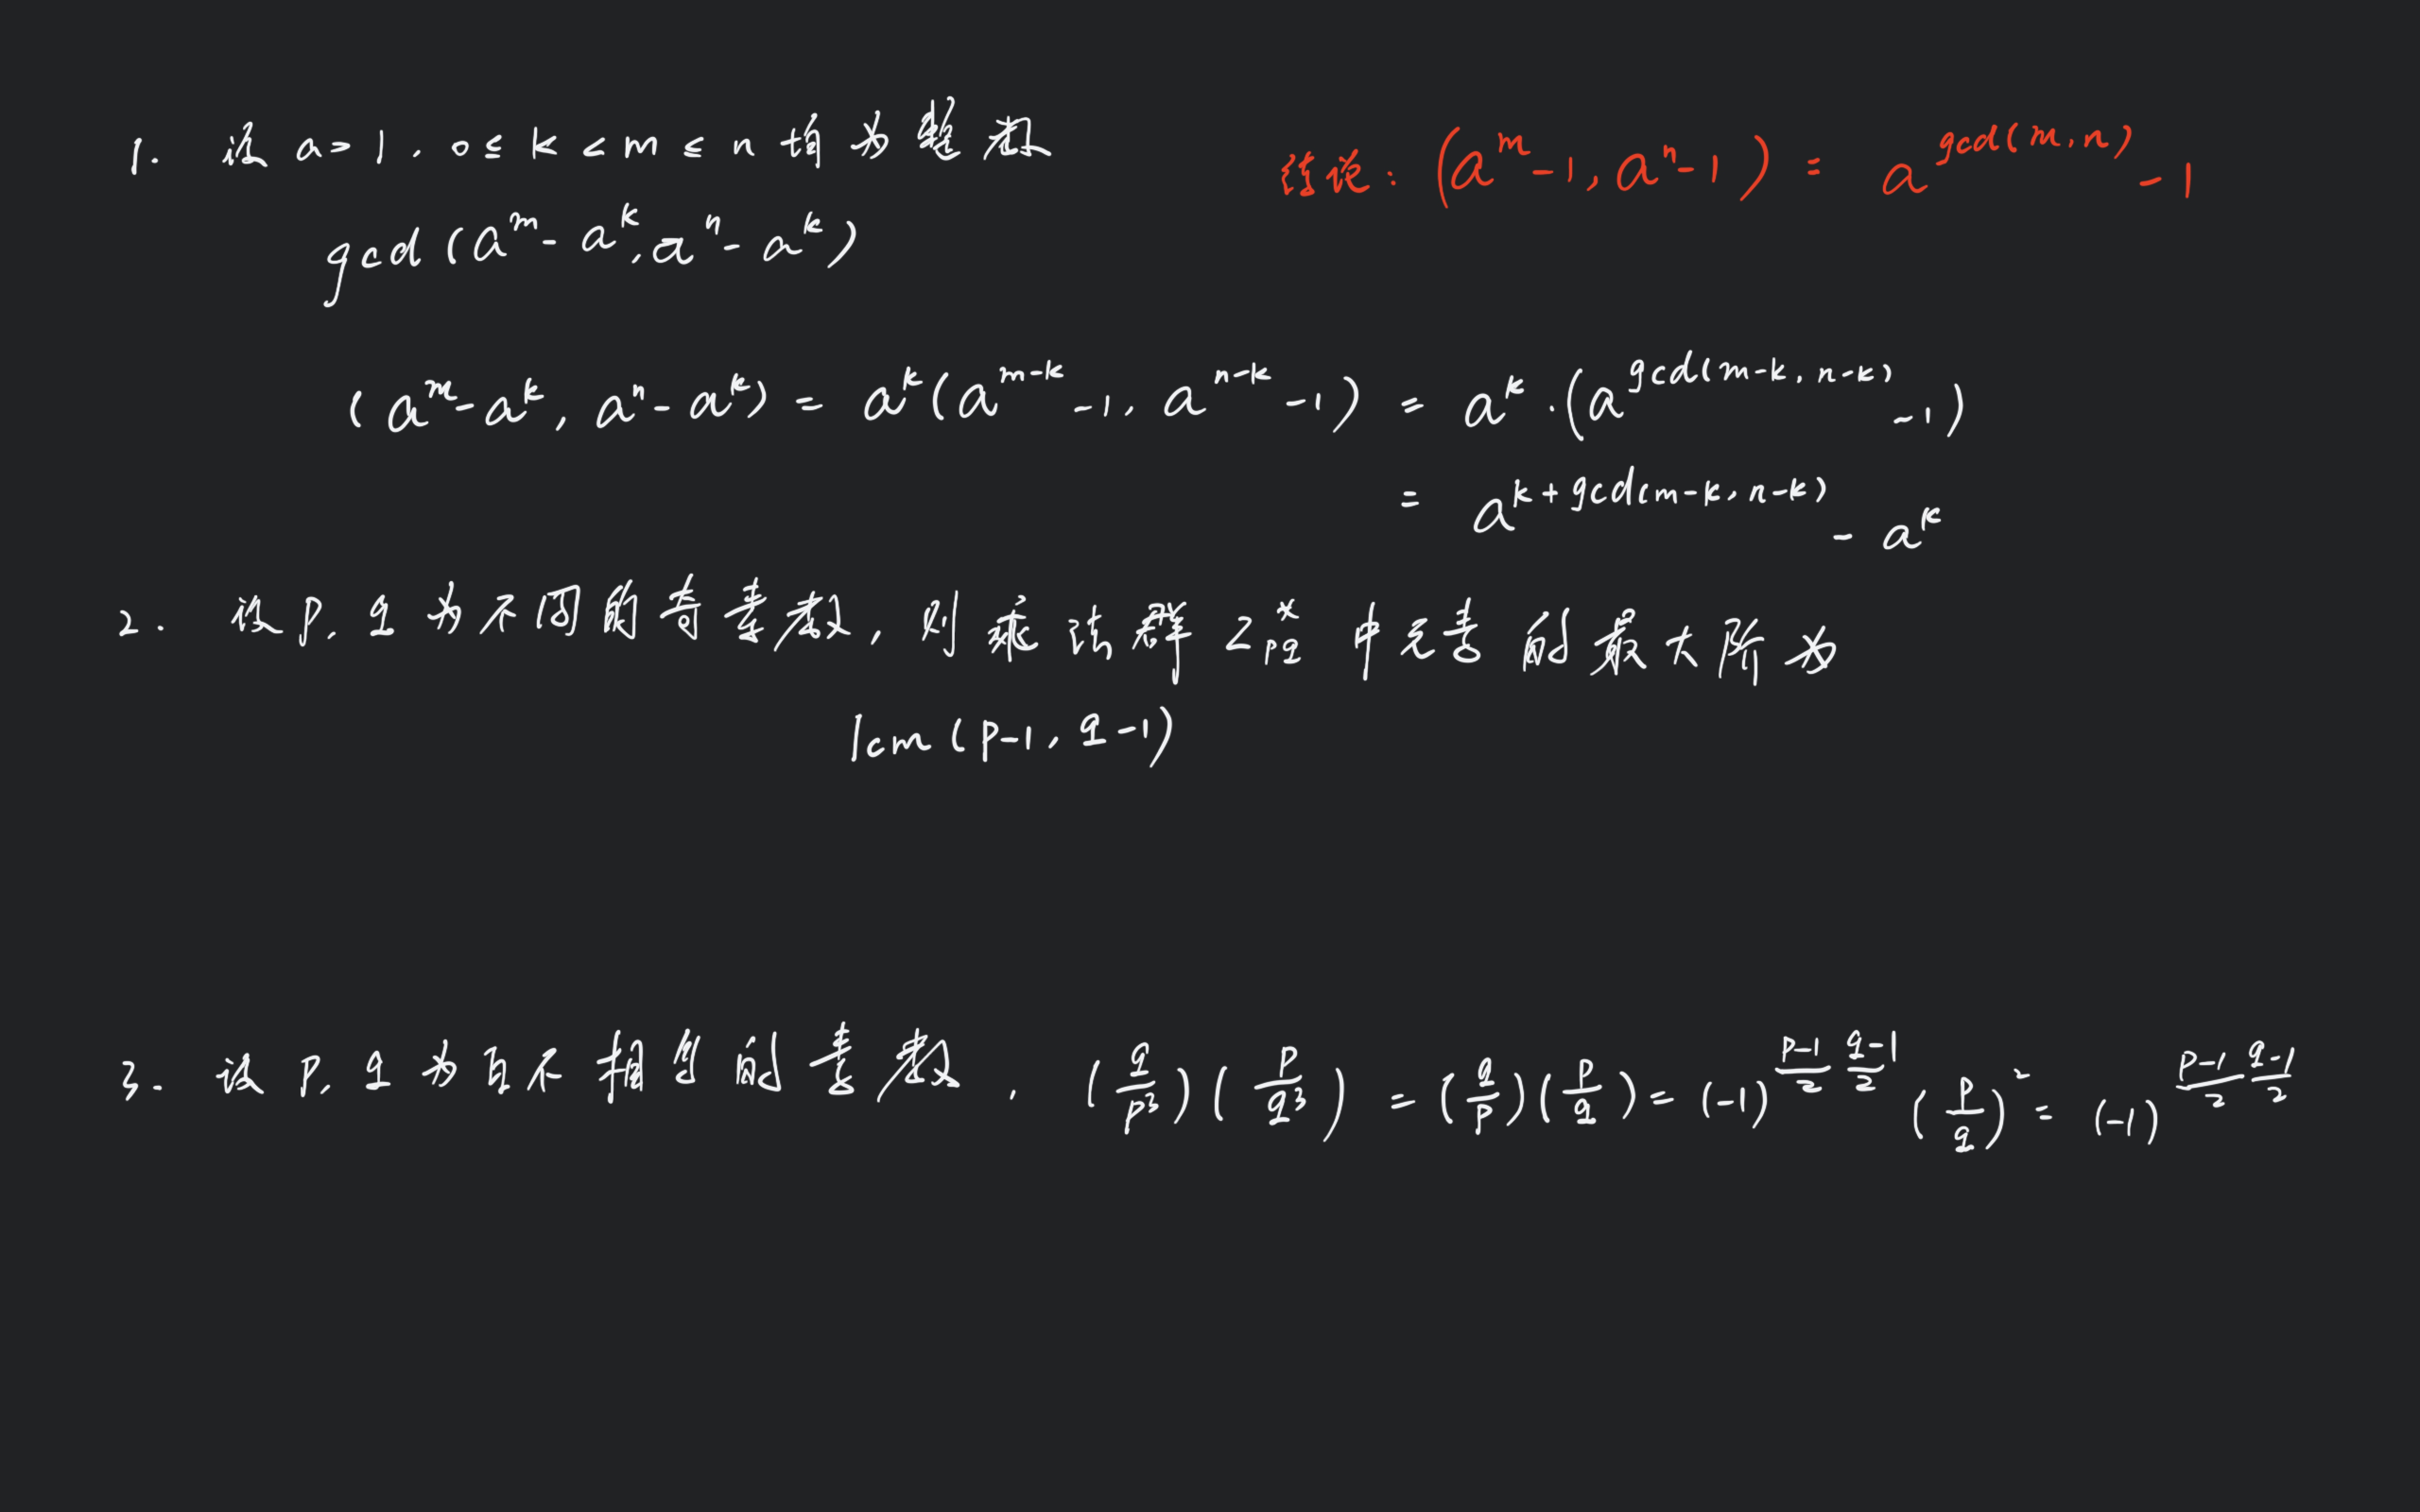 1. 设 a>1, 0≤k<m≤n 均为整数
结论: (a^m-1, a^n-1) = a^{gcd(m,n)}-1
gcd(a^m-a^k, a^n-a^k)
(a^m-a^k, a^n-a^k) = a^k(a^{m-k}-1, a^{n-k}-1) = a^k·(a^{gcd(m-k,n-k)}-1)
= a^{k+gcd(m-k,n-k)} - a^k
2. 设p,q为不同的奇素数,则乘法群 Z_{pq}^* 中元素的最大阶为
lcm(p-1, q-1)
3. 设p,q为互不相的素数, (q/p^3)(p/q^3) = (q/p)(p/q) = (-1)^{\frac{p-1}{2}\frac{q-1}{2}}(p/q)^2 = (-1)^{\frac{p-1}{2}\frac{q-1}{2}}